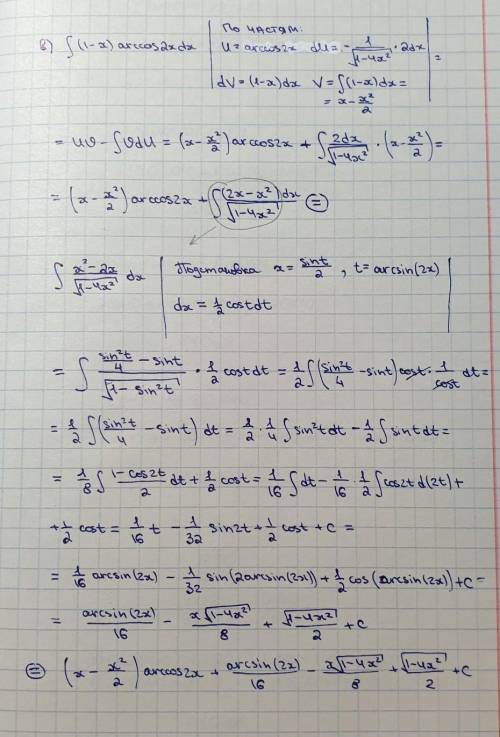 в) ∫(1-x) arccos2xdx | По частям: 
u = arccos2x du = -1/√(1-4x²) · 2dx
dV = (1-x)dx V = ∫(1-x)dx = 
= x - x²/2 | =
= uv - ∫vdu = (x - x²/2) arccos2x + ∫ 2dx/√(1-4x²) · (x - x²/2) =
= (x - x²/2) arccos2x + ∫ (2x-x²)dx/√(1-4x²) ⊜
∫ (x²-2x)/√(1-4x²) dx | Подстановка x = sint/2, t = arcsin(2x)
dx = 1/2 costdt |
= ∫ (sin²t/4 - sint)/√(1-sin²t) · 1/2 costdt = 1/2 ∫(sin²t/4 - sint) cost · 1/cost dt =
= 1/2 ∫(sin²t/4 - sint) dt = 1/2 · 1/4 ∫ sin²tdt - 1/2 ∫ sintdt =
= 1/8 ∫ (1-cos2t)/2 dt + 1/2 cost = 1/16 ∫dt - 1/16 · 1/2 ∫cos2t d(2t) +
+ 1/2 cost = 1/16 t - 1/32 sin2t + 1/2 cost + c =
= 1/16 arcsin(2x) - 1/32 sin(2arcsin(2x)) + 1/2 cos(arcsin(2x)) + c =
= arcsin(2x)/16 - x√(1-4x²)/8 + √(1-4x²)/2 + c
⊜ (x - x²/2) arccos2x + arcsin(2x)/16 - x√(1-4x²)/8 + √(1-4x²)/2 + c